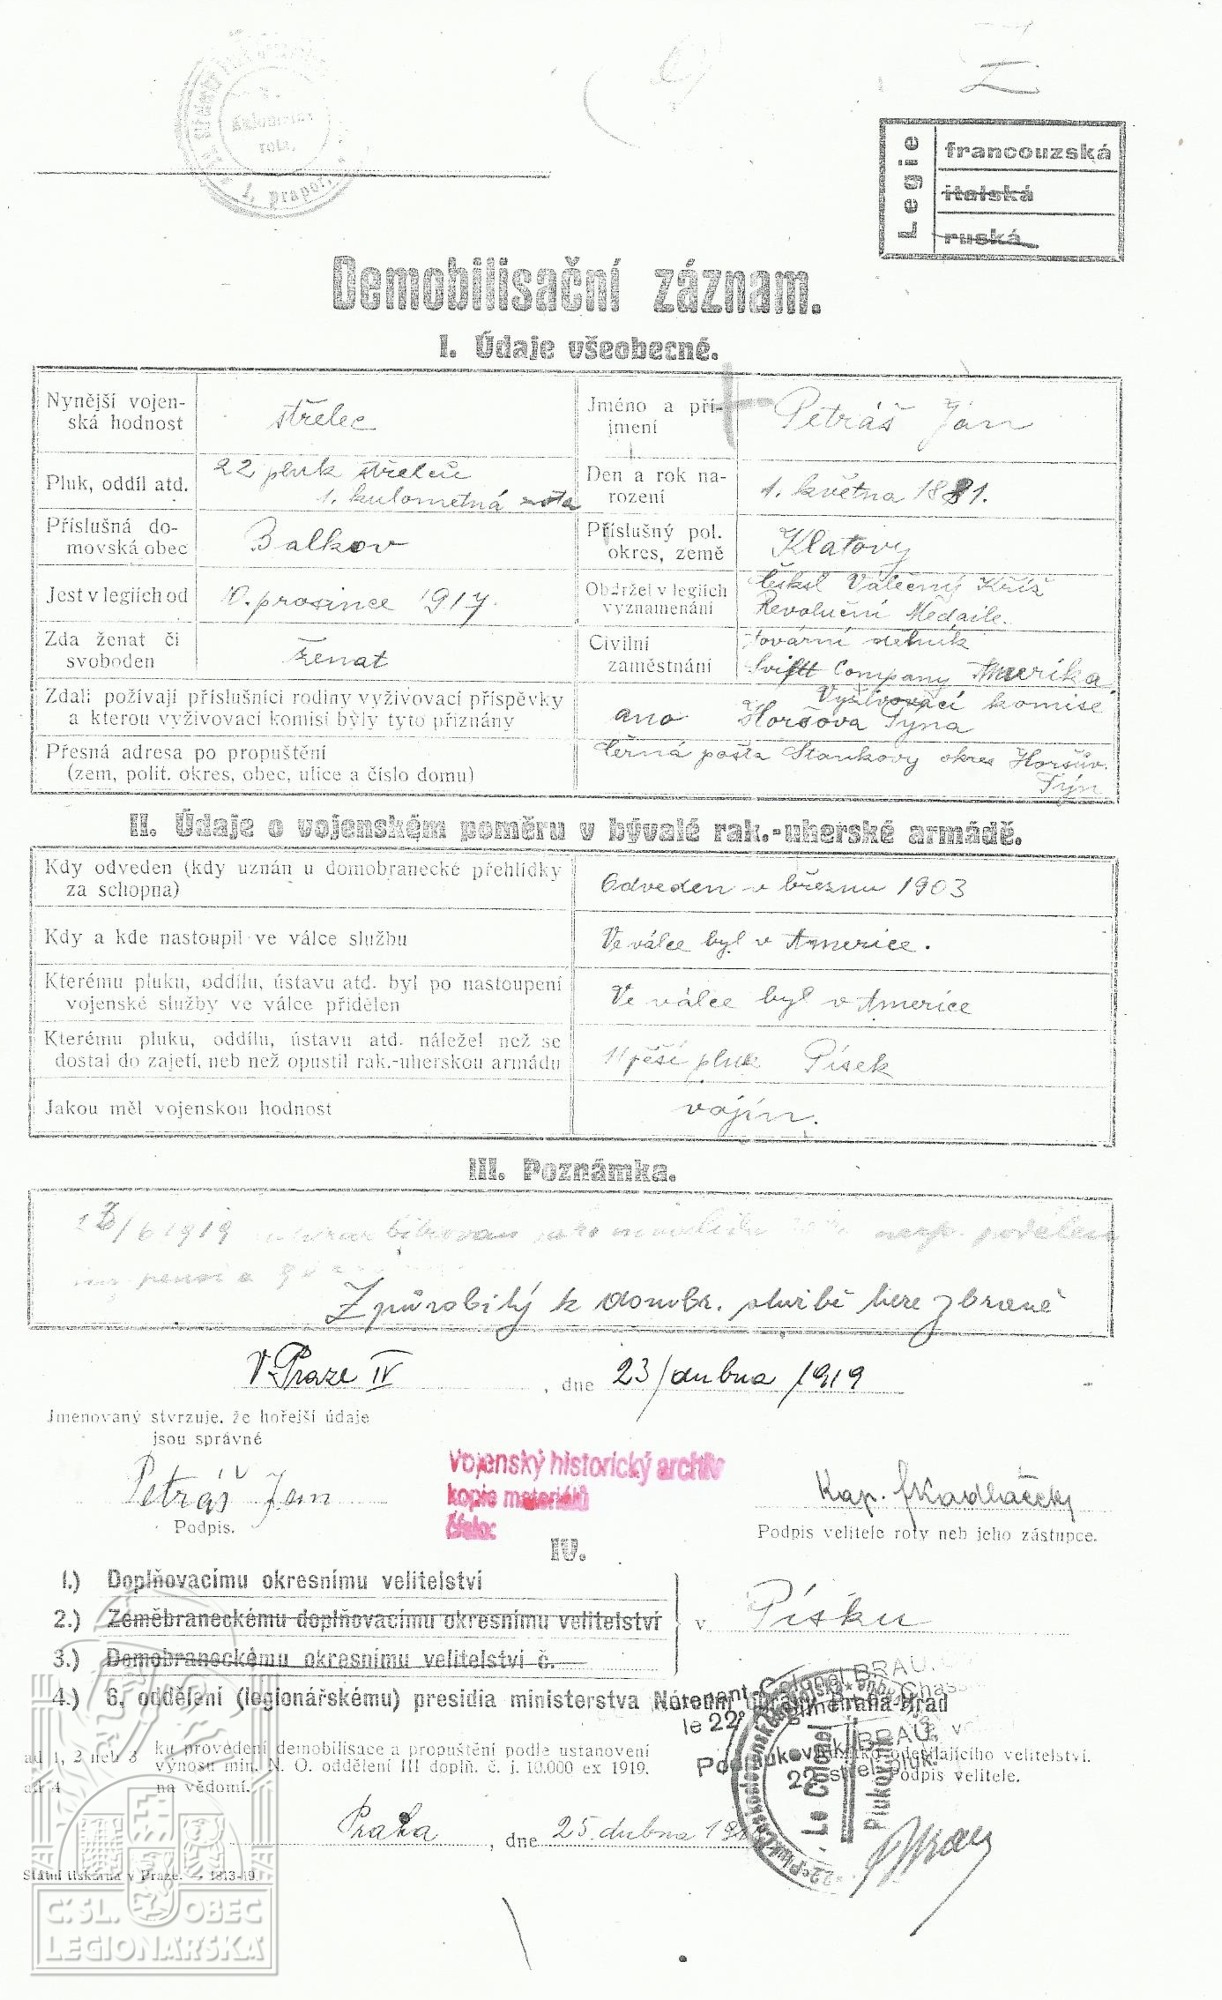 kulometná
rota,
1. prapor,
I
Legie
francouzská
italská
ruská
Demobilisační záznam.
I. Údaje všeobecné.
Nynější vojen-
ská hodnost
střelec
Jméno a pří-
jmení
Petráš Jan
Pluk, oddíl atd.
22 pluk střelců
1. kulometná rota
Den a rok na-
rození
1. května 1881.
Příslušná do-
movská obec
Balkov
Příslušný pol.
okres, země
Klatovy
Jest v legiích od
10. prosince 1917.
Obdržel v legiích
vyznamenání
Českosl Válečný Kříž
Revoluční Medaile.
Zda ženat či
svoboden
ženat
Civilní
zaměstnání
tovární delník
Swift Company Amerika
Zdali požívají příslušníci rodiny vyživovací příspěvky
a kterou vyživovací komisí byly tyto přiznány
ano Vyživovací komise
Horšova Týna
Přesná adresa po propuštění
(zem, polit. okres, obec, ulice a číslo domu)
Černá pošta Stankovy okres Horšův.
Týn
II. Údaje o vojenském poměru v bývalé rak.-uherské armádě.
Kdy odveden (kdy uznán u domobranecké přehlídky
za schopna)
Odveden v březnu 1903
Kdy a kde nastoupil ve válce službu
Ve válce byl v Americe.
Kterému pluku, oddílu, ústavu atd. byl po nastoupení
vojenské služby ve válce přidělen
Ve válce byl v Americe
Kterému pluku, oddílu, ústavu atd. náležel než se
dostal do zajetí, neb než opustil rak.-uherskou armádu
11 pěší pluk Písek
Jakou měl vojenskou hodnost
vojín.
III. Poznámka.
/6 1919
Způsobilý k domobr. službě beze zbraně
V Praze IV, dne 23/dubna 1919
Jmenovaný stvrzuje, že hořejší údaje
jsou správné
Petráš Jan
Podpis.
Vojenský historický archiv
kopie materiálů
číslo:
Kap. Kadlačeky
Podpis velitele roty neb jeho zástupce.
IV.
1.) Doplňovacímu okresnímu velitelství
2.) Zeměbraneckému doplňovacímu okresnímu velitelství
3.) Domobraneckému okresnímu velitelství č.
v Písku
4.) 6. oddělení (legionářskému) presidia ministerstva Národní Obrany Praha-Hrad
Lieutenant-Colonel BRAU,
le 22e Régiment de Chass
Podplukovník BRAU,
22 střel. pluk.
Le Colonel
Plukovník
ad 1, 2 neb 3 ku provedení demobilisace a propuštění podle ustanovení
výnosu min. N. O. oddělení III doplň. č. j. 10.000 ex 1919.
ad 4 na vědomí.
odesílajícího velitelství.
podpis velitele.
Praha, dne 25. dubna
Brau
Státní tiskárna v Praze. — 1813-19.
Č. SL. OBEC
LEGIONÁŘSKÁ